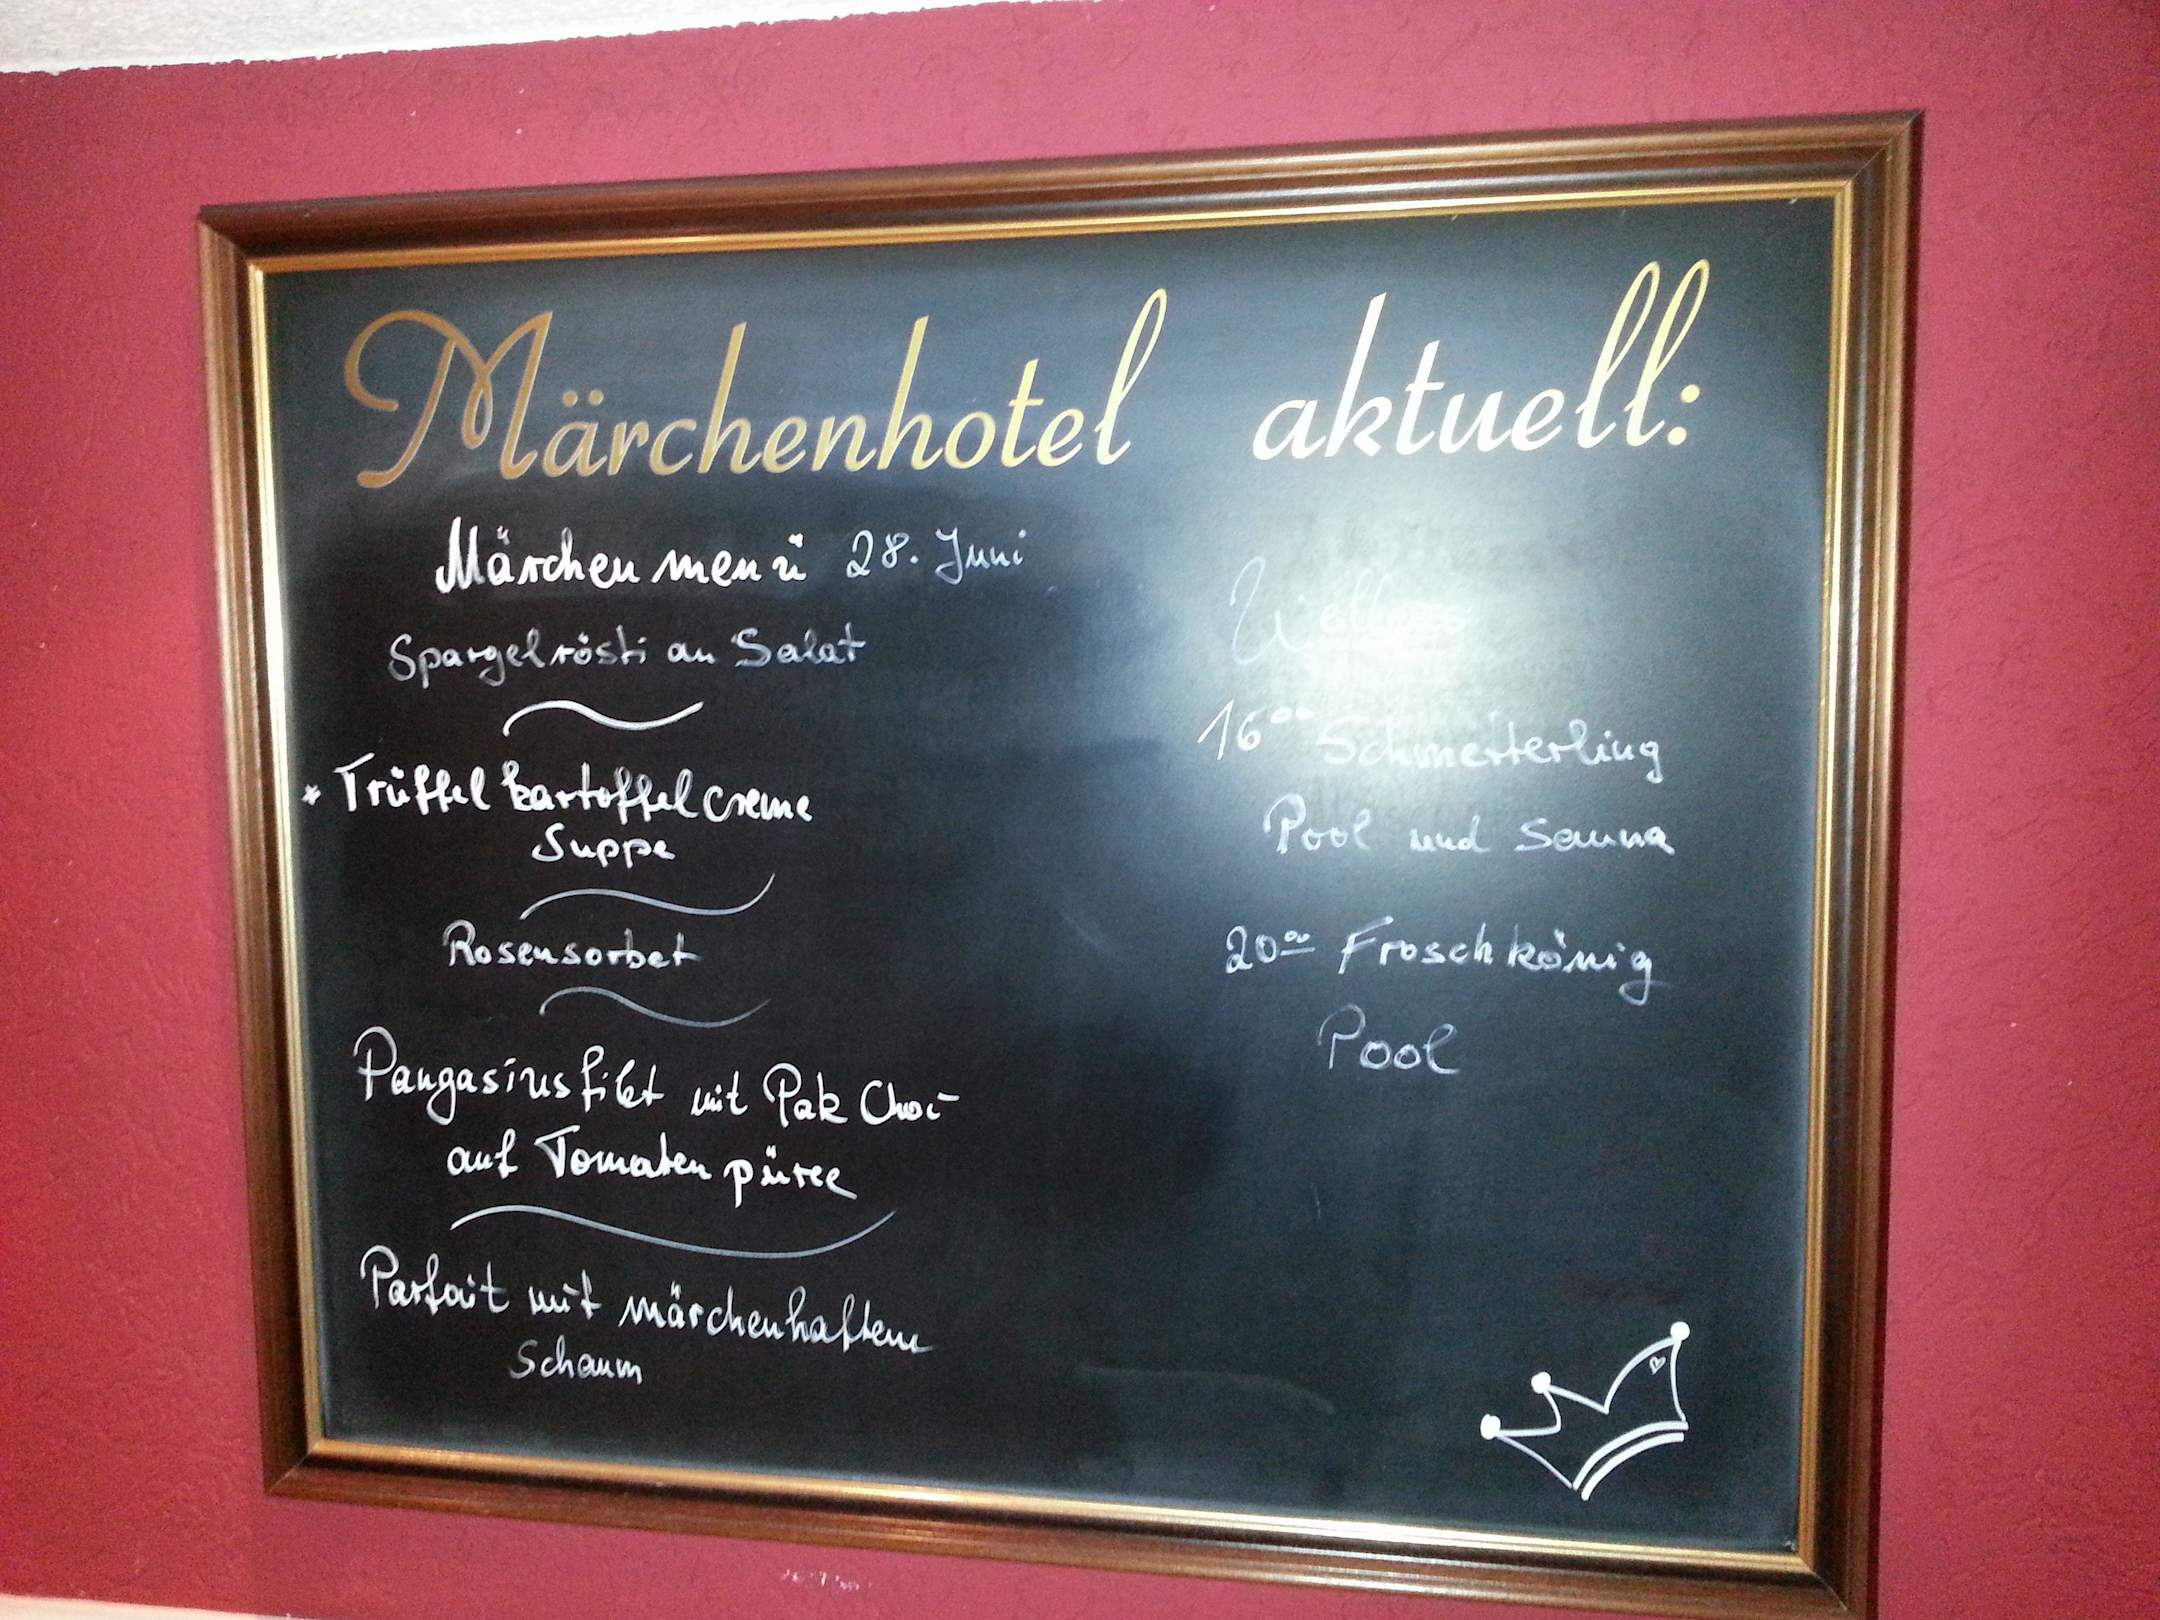 Märchenhotel aktuell:
Märchenmenü 28. Juni
Spargelrösti an Salat
* Trüffelkartoffelcreme
Suppe
Rosensorbet
Pangasiusfilet mit Pak Choi
auf Tomatenpüree
Parfait mit märchenhaftem
Schaum
Wellness
16°° Schmetterling
Pool und Sauna
20°° Froschkönig
Pool